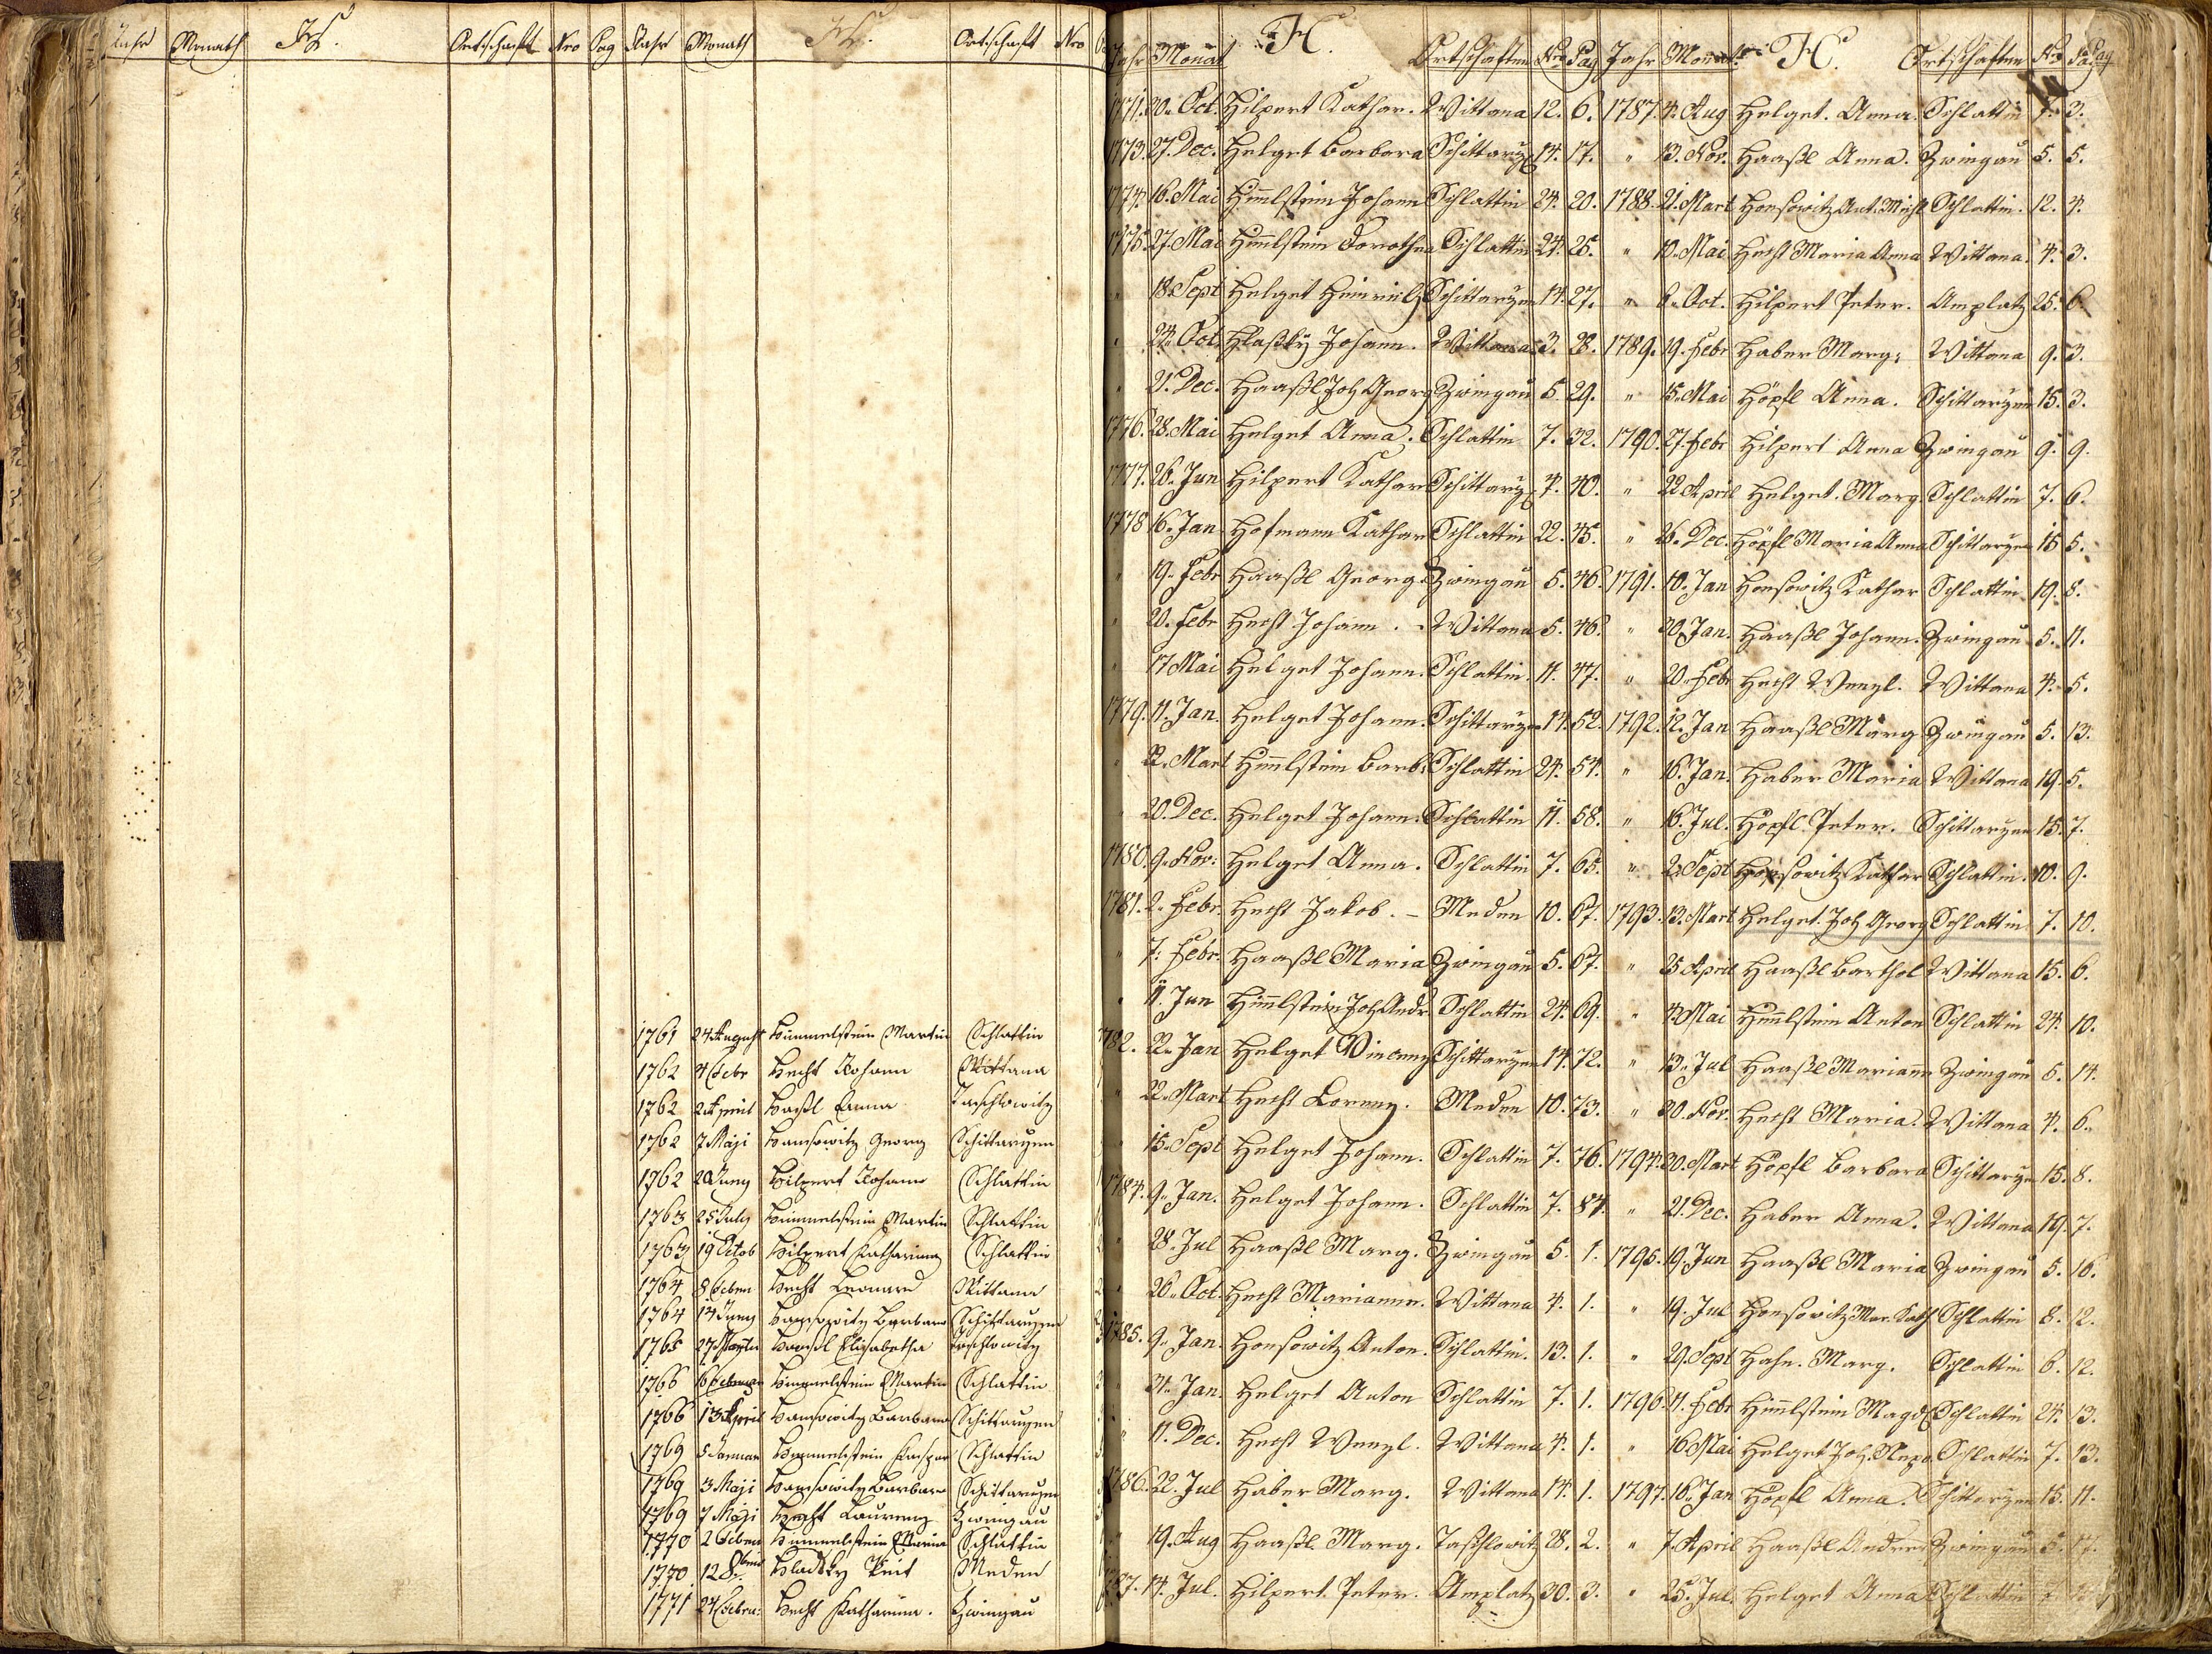 Jahr Monath H. Ortschaft Nro Pag Jahr Monath H. Ortschaft Nro
1761 24 August Himmelstein Martin Schlattin
1762 4 Febr Hecht Johann Wittana
1762 2 April Haßl Anna Taschlowitz
1762 7 Maji Hansowitz Georg Schittarzen
1762 20 Juny Hilpert Johann Schlattin
1763 25 July Himmelstein Martin Schlattin
1763 19 Octob Hilpert Katharina Schlattin
1764 8 Hecht Leonard Wittana
1764 14 Juny Hansowitz Barbara Schittarzen
1765 27 Haaßl Elisabetha Taschlowitz
1766 16 Himmelstein Martin Schlattin
1766 13 April Hansowitz Barbara Schittarzen
1769 5 Januar Himmelstein Kaspar Schlattin
1769 3 Maji Hansowitz Barbara Schittarzen
1769 7 Maji Hecht Laurenz Zwingau
1770 2 Himmelstein Maria Schlattin
1770 12 8br Hladky Veit Meden
1771 24 Febru: Hecht Katharina. Zwingau
Jahr Monat H. Ortschaften Nro Pag Jahr Monat H. Ortschaften Nro Pag
1771. 20. Oct. Hilpert Kathar. Wittana 12. 6. 1787. 4. Aug Helget. Anna. Schlattin 7. 3.
1773. 27. Dec. Helget Barbara Schittarz 14. 17. " 13. Nov. Haaßl Anna. Zwingau 5. 5.
1774. 16. Mai Himlstein Johann Schlattin 24. 20. 1788. 21. Mart Honsowitz Ant. Mich Schlattin. 12. 4.
1775. 27. Mai Himlstein Dorothea Schlattin 24. 25. " 10. Mai Hecht Maria Anna Wittana. 4. 3.
" 18. Sept Helget Heinrich Schittarzen 14. 27. " 6. Oct. Hilpert Peter. Amplatz 25. 6.
" 24. Oct. Hlaßky Johann. Wittana 3. 28. 1789. 19. Febr Haber Marg: Wittana 9. 3.
" 21. Dec. Haaßl Joh Georg Zwingau 5. 29. " 15. Mai Höpfl Anna. Schittarzen 15. 3.
1776. 28. Mai Helget Anna. Schlattin 7. 32. 1790. 27. Febr Hilpert Anna Zwingau 9. 9.
1777. 26. Jun Hilpert Kathar Schittarz 4. 40. " 22 April Helget. Marg. Schlattin 7. 6.
1778 16. Jan Hofmann Kathar Schlattin 22. 45. " 26. Dec. Höpfl Maria Anna Schittarzen 15 5.
" 19. Febr Haaßl Georg. Zwingau 5. 46. 1791. 10. Jan Honsowitz Kathar Schlattin 19. 8.
" 20. Febr Hecht Johann. Wittana 5. 46. " 30 Jan. Haaßl Johann. Zwingau 5. 11.
" 17 Mai Helget Johann. Schlattin. 11. 47. " 20. Febr Hecht Wenzl. Wittana 4. 5.
1779. 11. Jan. Helget Johann. Schittarzen 14. 52. 1792. 12. Jan Haaßl Marg Zwingau 5. 13.
" 22. Mart Himlstein Barb. Schlattin 24. 54. " 16. Jan. Haber Maria Wittana 19. 5.
" 20. Dec. Helget Johann. Schlattin 11. 58. " 16. Jul. Höpfl Peter. Schittarzen 15. 7.
1780. 9. Nov: Helget Anna. Schlattin 7. 65. " 2. Sept Honsowitz Kathar Schlattin. 10. 9.
1781. 2. Febr. Hecht Jakob. – Meden 10. 67. 1793. 13. Mart Helget. Joh Georg Schlattin 7. 10.
" 7. Febr. Haaßl Maria Zwingau 5. 67. " 25 April Haaßl Barthol Wittana 15. 6.
" 11. Jun Himlstein Joh Andr Schlattin 24. 69. " 4. Mai Himlstein Anton Schlattin 24. 10.
1782. 22. Jan Helget Vincenz Schittarzen 14. 72. " 13. Jul Haaßl Mariann Zwingau 5. 14.
" 22. Mart Hecht Lorenz. Meden 10. 73. " 30. Nov. Hecht Maria. Wittana 4. 6.
" 15. Sept Helget Johann. Schlattin 7. 76. 1794. 20. Mart Höpfl Barbara Schittarzen 15. 8.
1784. 9. Jan. Helget Johann. Schlattin 7. 84. " 21. Dec. Haber Anna. Wittana 19. 7.
" 28. Jul Haaßl Marg. Zwingau 5. 1. 1795. 19. Jun Haaßl Maria Zwingau 5. 16.
" 26. Oct. Hecht Marianna. Wittana 4. 1. " 19. Jul Honsowitz Mar. Kath Schlattin 8. 12.
1785. 9. Jan. Honsowitz Anton. Schlattin. 13. 1. " 29. Sept Hahn. Marg. Schlattin 6. 12.
" 31. Jan. Helget Anton Schlattin 7. 1. 1796. 11. Febr Himlstein Magd Schlattin 24. 13.
" 11. Dec. Hecht Wenzl. Wittana 4. 1. " 16. Mai Helget Joh. Nepo Schlattin 7. 13.
1786. 22. Jul Haber Marg. Wittana 14. 1. 1797. 16. Jan Höpfl Anna. Schittarzen 15. 11.
" 19. Aug Haaßl. Marg. Taßlowitz 28. 2. " 7. April Haaßl Andreas Zwingau 5. 17.
1787. 14. Jul. Hilpert. Peter. Amplatz 30. 3. " 25. Jul. Helget Anna Schlattin